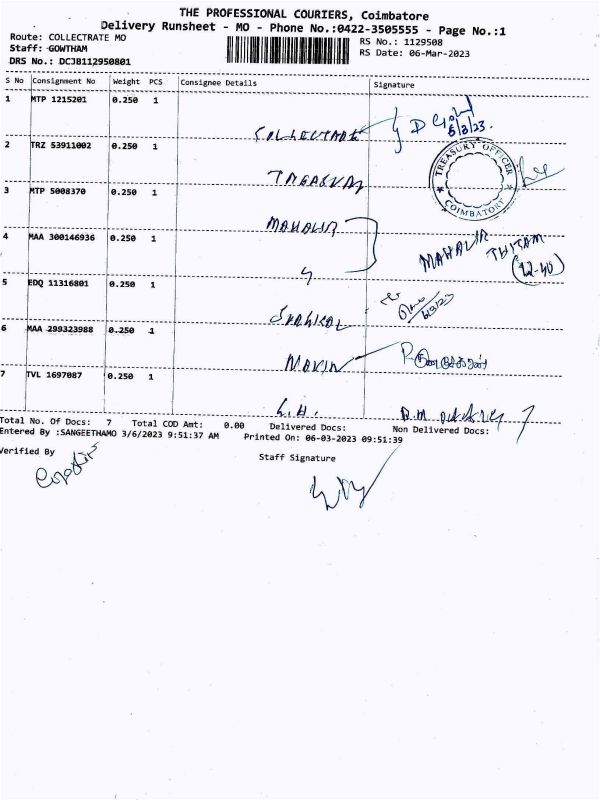 THE PROFESSIONAL COURIERS, Coimbatore
Delivery Runsheet - MO - Phone No.:0422-3505555 - Page No.:1
Route: COLLECTRATE MO
RS No.: 1129508
Staff: GOWTHAM
RS Date: 06-Mar-2023
DRS No.: DCJB112950801
S No Consignment No Weight PCS Consignee Details Signature
1 MTP 1215201 0.250 1
COLLECTRATE
6/3/23.
2 TRZ 53911002 0.250 1
TREASURY OFFICER
COIMBATORE
3 MTP 5008370 0.250 1
MAHALIR
4 MAA 300146936 0.250 1
MAHALIR THITAM
(12-40)
5 EDQ 11316801 0.250 1
6/3/23
6 MAA 299323988 0.250 1
7 TVL 1697087 0.250 1
Total No. Of Docs: 7 Total COD Amt: 0.00 Delivered Docs: Non Delivered Docs:
7
Entered By :SANGEETHAMO 3/6/2023 9:51:37 AM Printed On: 06-03-2023 09:51:39
Verified By
Staff Signature